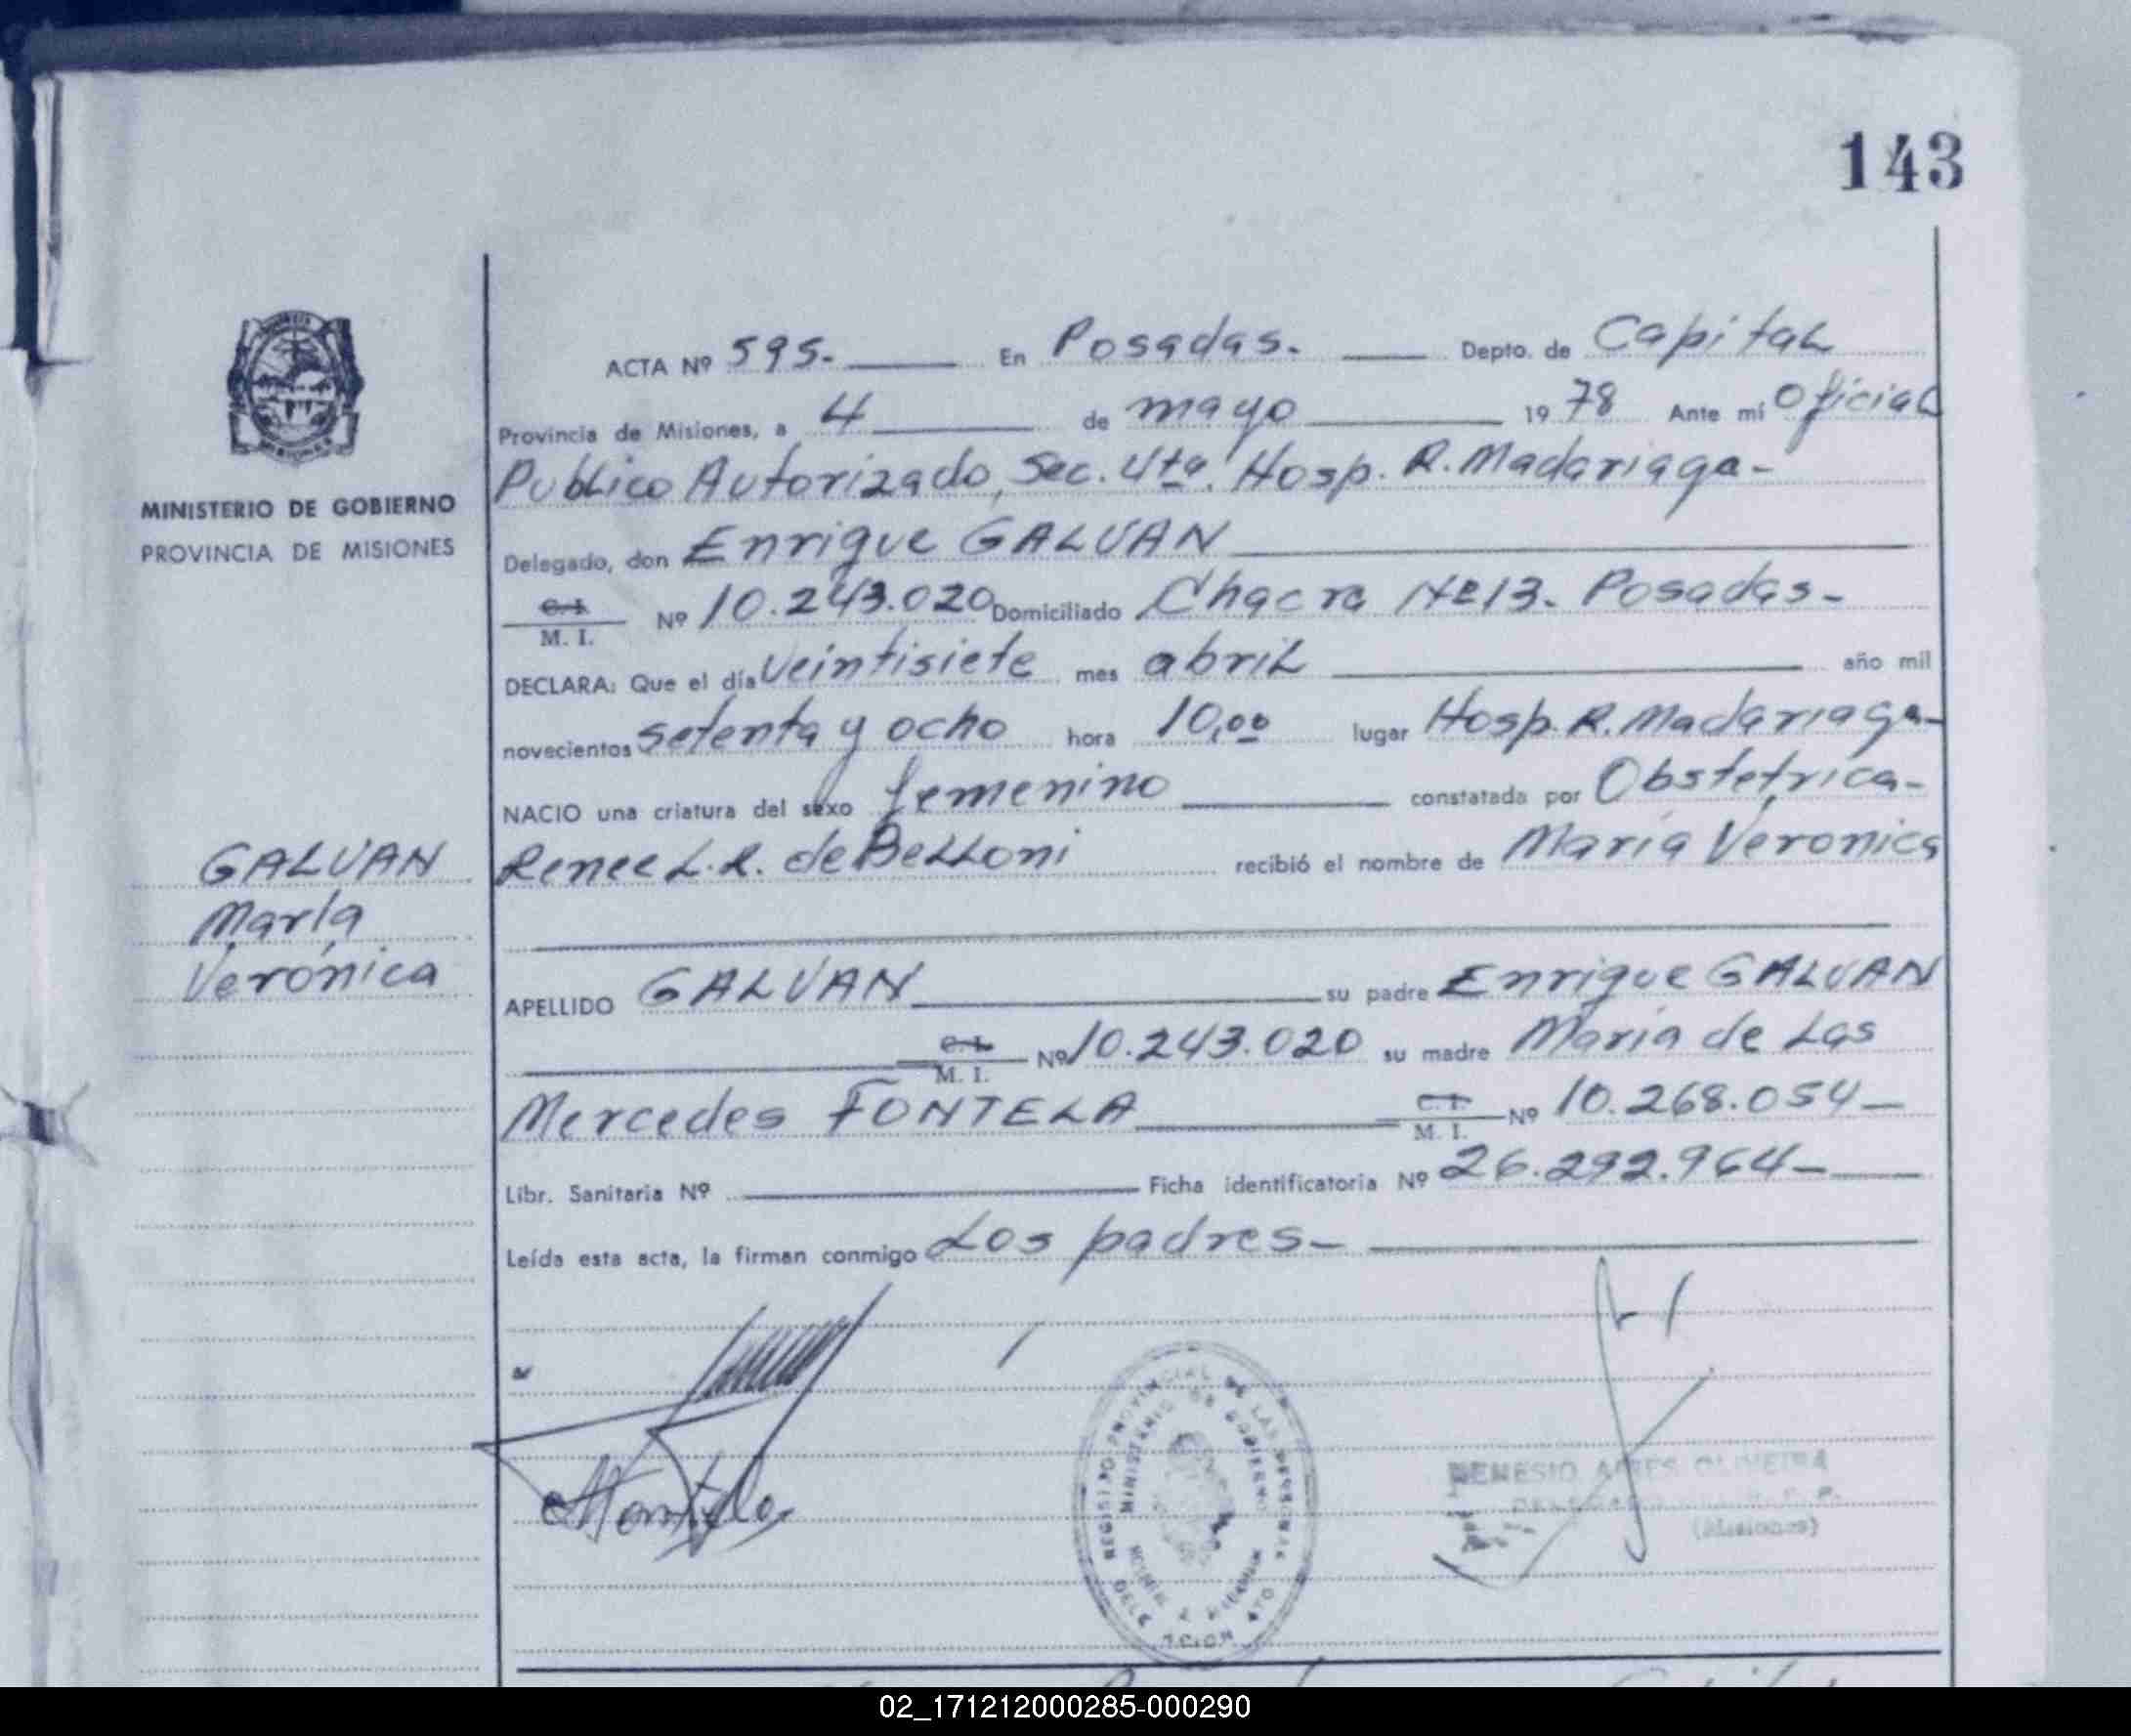 143
ACTA Nº 595.- En Posadas.- Depto. de Capital
Provincia de Misiones, a 4 de mayo 1978 Ante mí Oficial
Publico Autorizado, Sec. 4ta. Hosp. R. Madariaga-
MINISTERIO DE GOBIERNO
PROVINCIA DE MISIONES
Delegado, don Enrique GALVAN
C. I.
M. I. Nº 10.243.020 Domiciliado Chacra Nº 13. Posadas-
DECLARA: Que el día veintisiete mes abril año mil
novecientos setenta y ocho hora 10,00 lugar Hosp. R. Madariaga-
NACIO una criatura del sexo femenino constatada por Obstetrica-
Renee L. R. de Belloni recibió el nombre de María Veronica
GALVAN
María
Verónica
APELLIDO GALVAN su padre Enrique GALVAN
C. I.
M. I. Nº 10.243.020 su madre María de Las
Mercedes FONTELA C. I.
M. I. Nº 10.268.054-
Libr. Sanitaria Nº Ficha identificatoria Nº 26.292.964-
Leída esta acta, la firman conmigo Los padres-
REGISTRO PROVINCIAL DE LAS PERSONAS
MINISTERIO DE GOBIERNO
OLIVEIRA
(Misiones)
02_171212000285-000290